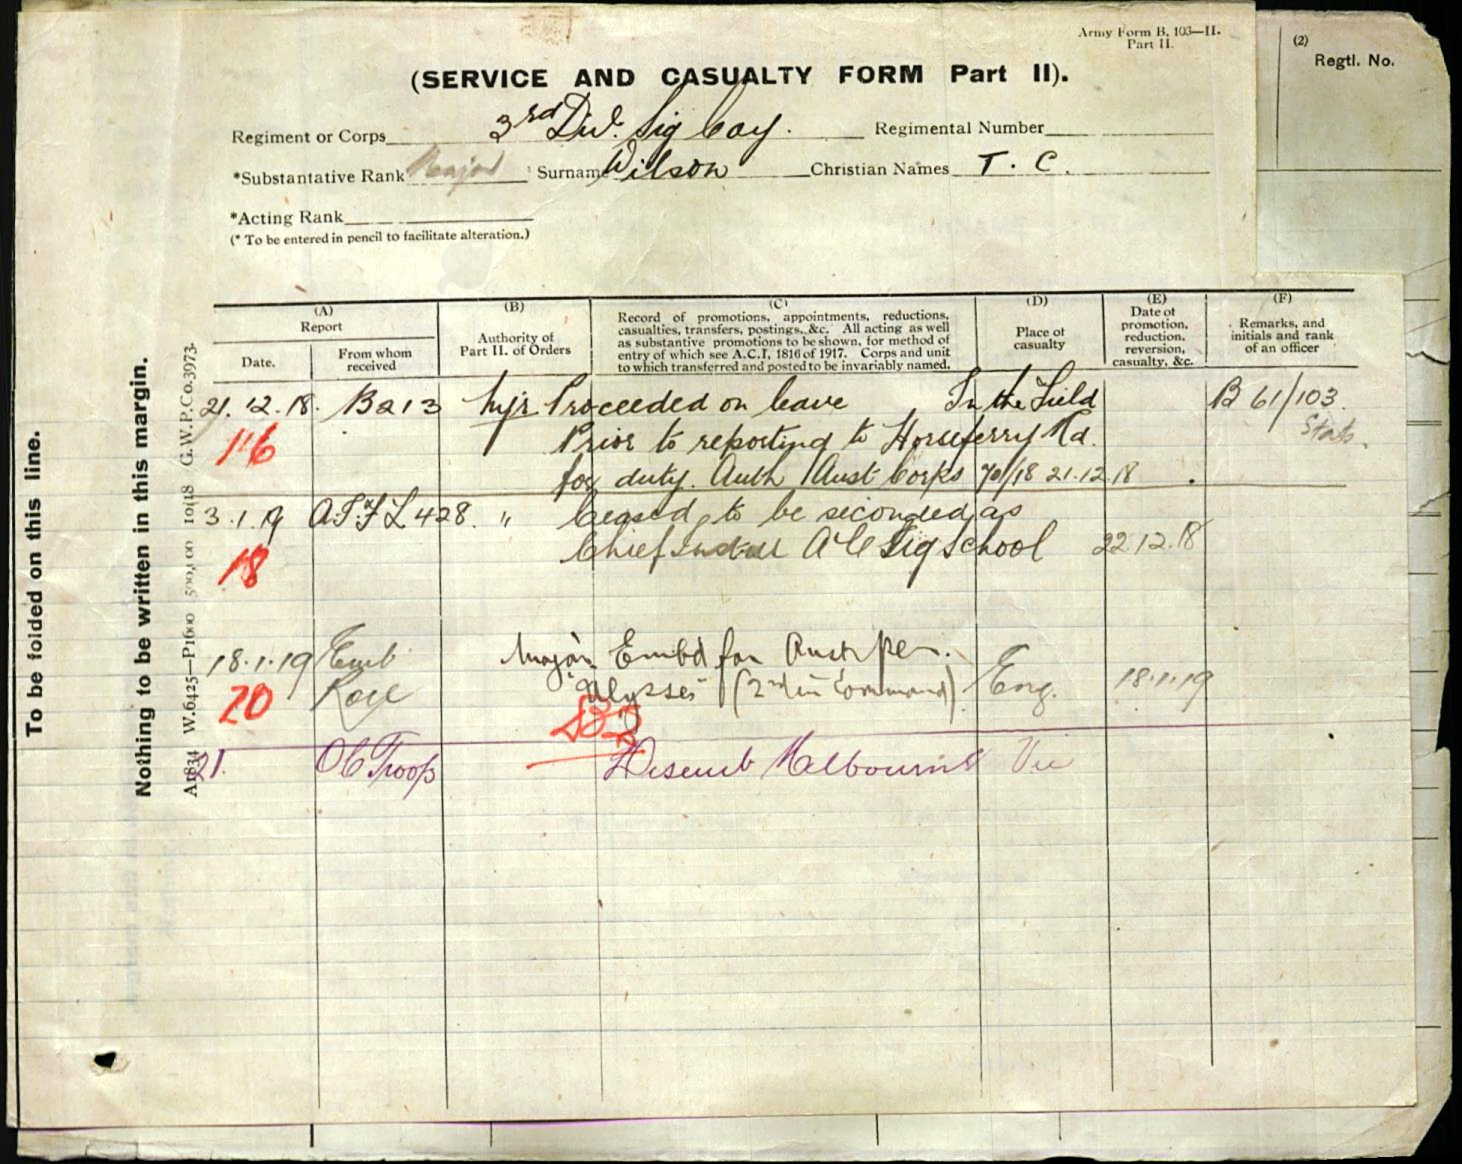 Army Form B. 103—II.
Part II.
(2)
Regtl. No.
(SERVICE AND CASUALTY FORM Part II).
Regiment or Corps 3rd Div. Sig Coy. Regimental Number
*Substantative Rank Major Surname Wilson Christian Names T. C.
*Acting Rank
(* To be entered in pencil to facilitate alteration.)
To be folded on this line.
Nothing to be written in this margin.
A1834 W.6425—P1600 500,000 10/18 G.W.P.Co.3973.
(A)
Report
Date.
From whom
received
(B)
Authority of
Part II. of Orders
(C)
Record of promotions, appointments, reductions,
casualties, transfers, postings, &c. All acting as well
as substantive promotions to be shown, for method of
entry of which see A.C.I, 1816 of 1917. Corps and unit
to which transferred and posted to be invariably named.
(D)
Place of
casualty
(E)
Date of
promotion,
reduction,
reversion,
casualty, &c.
(F)
Remarks, and
initials and rank
of an officer
21.12.18. B213 Mjr Proceeded on leave In the Field B 61/103
116 Prior to reporting to Horseferry Rd. Stats.
for duty. Auth Aust Corps 70/18 21.12.18
3.1.19 428 " Ceased to be seconded as
18 Chief A C Sig School 22.12.18
18.1.19 Emb Major Embd for Aust per
20 Roll "Ulysses" (2nd in Command) Eng. 18.1.19
21. OC Troops Disemb Melbourne Vic